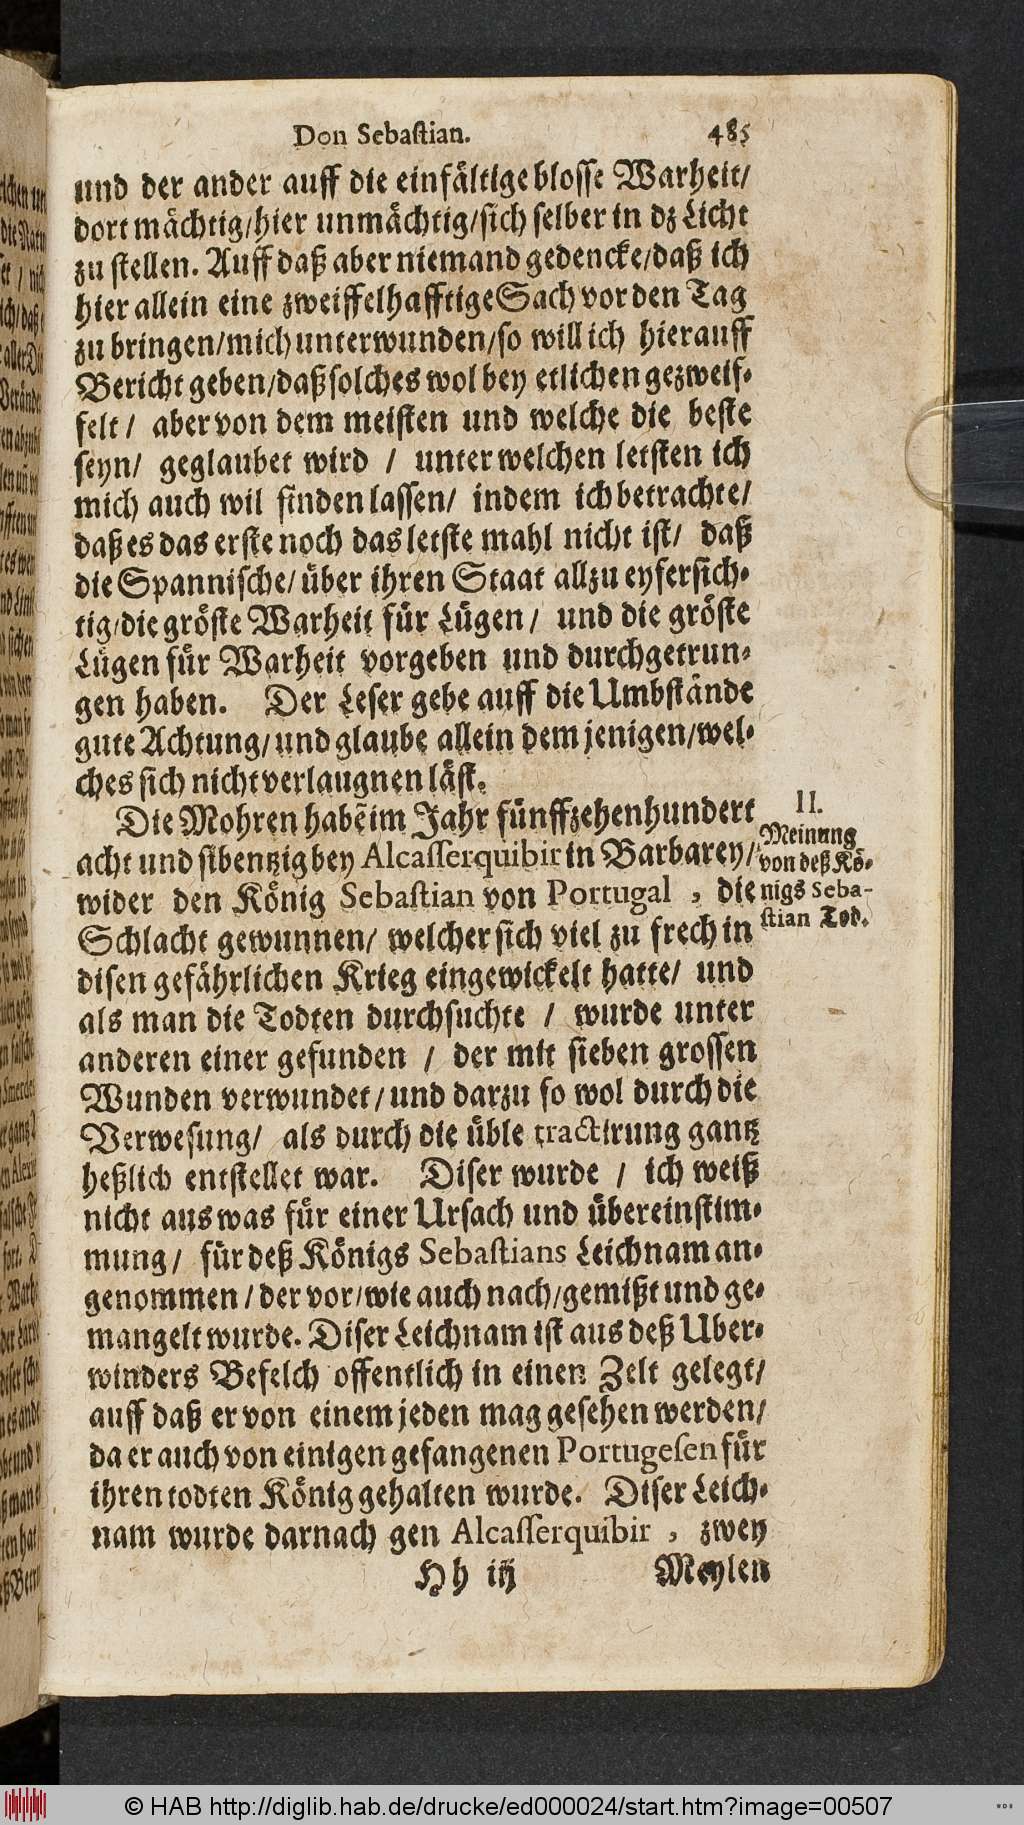 Don Sebaſtian. 485
und der ander auff die einfältige blosse Warheit/
dort mächtig/hier unmächtig/sich selber in dz Licht
zu stellen. Auff daß aber niemand gedencke/daß ich
hier allein eine zweiffelhafftige Sach vor den Tag
zu bringen/mich unterwunden/so will ich hierauff
Bericht geben/daß solches wol bey etlichen gezweif-
felt/ aber von dem meisten und welche die beste
seyn/ geglaubet wird / unter welchen letsten ich
mich auch wil finden lassen/ indem ich betrachte/
daß es das erste noch das letste mahl nicht ist/ daß
die Spannische/ über ihren Staat allzu eyfersich-
tig/die gröste Warheit für Lügen/ und die gröste
Lügen für Warheit vorgeben und durchgetrun-
gen haben. Der Leser gebe auff die Umbstände
gute Achtung/und glaube allein dem jenigen/wel-
ches sich nicht verlaugnen läst.
Die Mohren habẽ im Jahr fünffzehenhundert
acht und sibentzig bey Alcaſſerquibir in Barbarey/
wider den König Sebaſtian von Portugal , die
Schlacht gewunnen/ welcher sich viel zu frech in
disen gefährlichen Krieg eingewickelt hatte/ und
als man die Todten durchsuchte / wurde unter
anderen einer gefunden / der mit sieben grossen
Wunden verwundet/und darzu so wol durch die
Verwesung/ als durch die üble tractirung gantz
heßlich entstellet war. Diser wurde / ich weiß
nicht aus was für einer Ursach und übereinstim-
mung/ für deß Königs Sebaſtians Leichnam an-
genommen/der vor/wie auch nach/gemißt und ge-
mangelt wurde. Diser Leichnam ist aus deß Uber-
winders Befelch offentlich in einen Zelt gelegt/
auff daß er von einem jeden mag gesehen werden/
da er auch von einigen gefangenen Portugeſen für
ihren todten König gehalten wurde. Diser Leich-
nam wurde darnach gen Alcaſſerquibir , zwey
Hh iij Meylen
II.
Meinung
von deß Kö-
nigs Seba-
ſtian Tod.
© HAB http://diglib.hab.de/drucke/ed000024/start.htm?image=00507